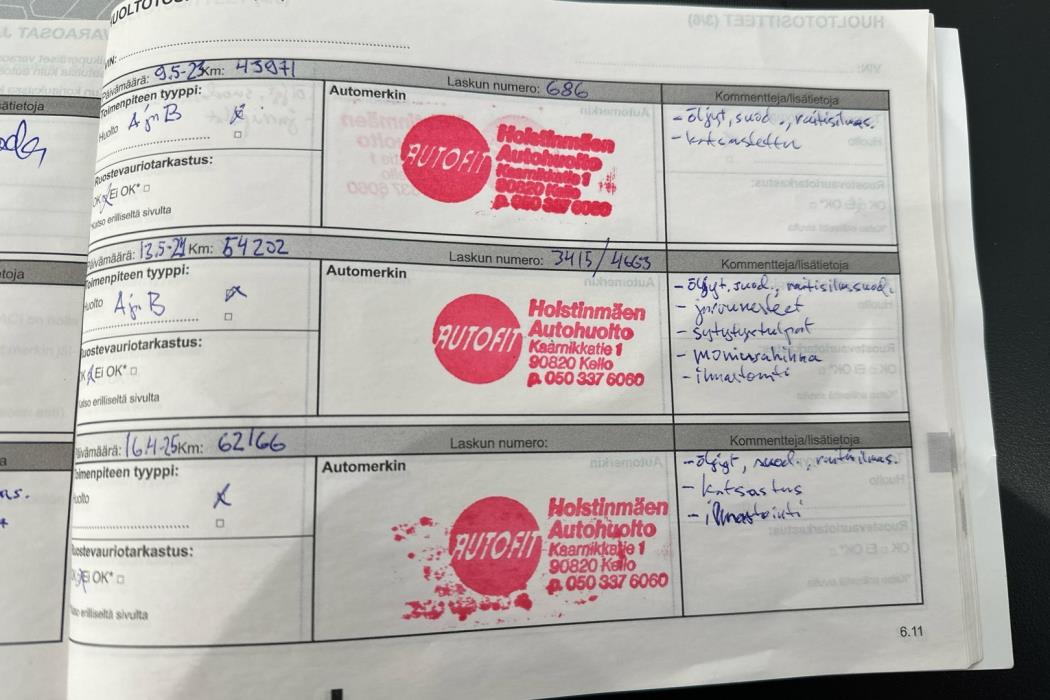 HUOLTOTOSI
VIN:
Päivämäärä: 9.5-23 Km: 43971
Laskun numero: 686
Kommentteja/lisätietoja
Toimenpiteen tyyppi:
Huolto A ja B x
Ruostevauriotarkastus:
OK x Ei OK* □
*Katso erilliseltä sivulta
Automerkin
AUTOFIT
Holstinmäen
Autohuolto
Kaarnikkatie 1
90820 Kello
p. 050 337 6060
- öljyt, suod., raitisilmas.
- katsastettu
Päivämäärä: 13.5-24 Km: 54202
Laskun numero: 3415/4663
Kommentteja/lisätietoja
Toimenpiteen tyyppi:
Huolto A ja B x
Ruostevauriotarkastus:
K x Ei OK* □
Katso erilliseltä sivulta
Automerkin
AUTOFIT
Holstinmäen
Autohuolto
Kaarnikkatie 1
90820 Kello
p. 050 337 6060
- öljyt, suod., raitisilmasuod.
- jarrunesteet
- sytytystulpat
- moniurahihna
- ilmastointi
Päivämäärä: 16.4-25 Km: 62166
Laskun numero:
Kommentteja/lisätietoja
oimenpiteen tyyppi:
uolto x
uostevauriotarkastus:
Ei OK* □
so erilliseltä sivulta
Automerkin
AUTOFIT
Holstinmäen
Autohuolto
Kaarnikkatie 1
90820 Kello
p. 050 337 6060
- öljyt, suod., raitisilmas.
- katsastus
- ilmastointi
6.11